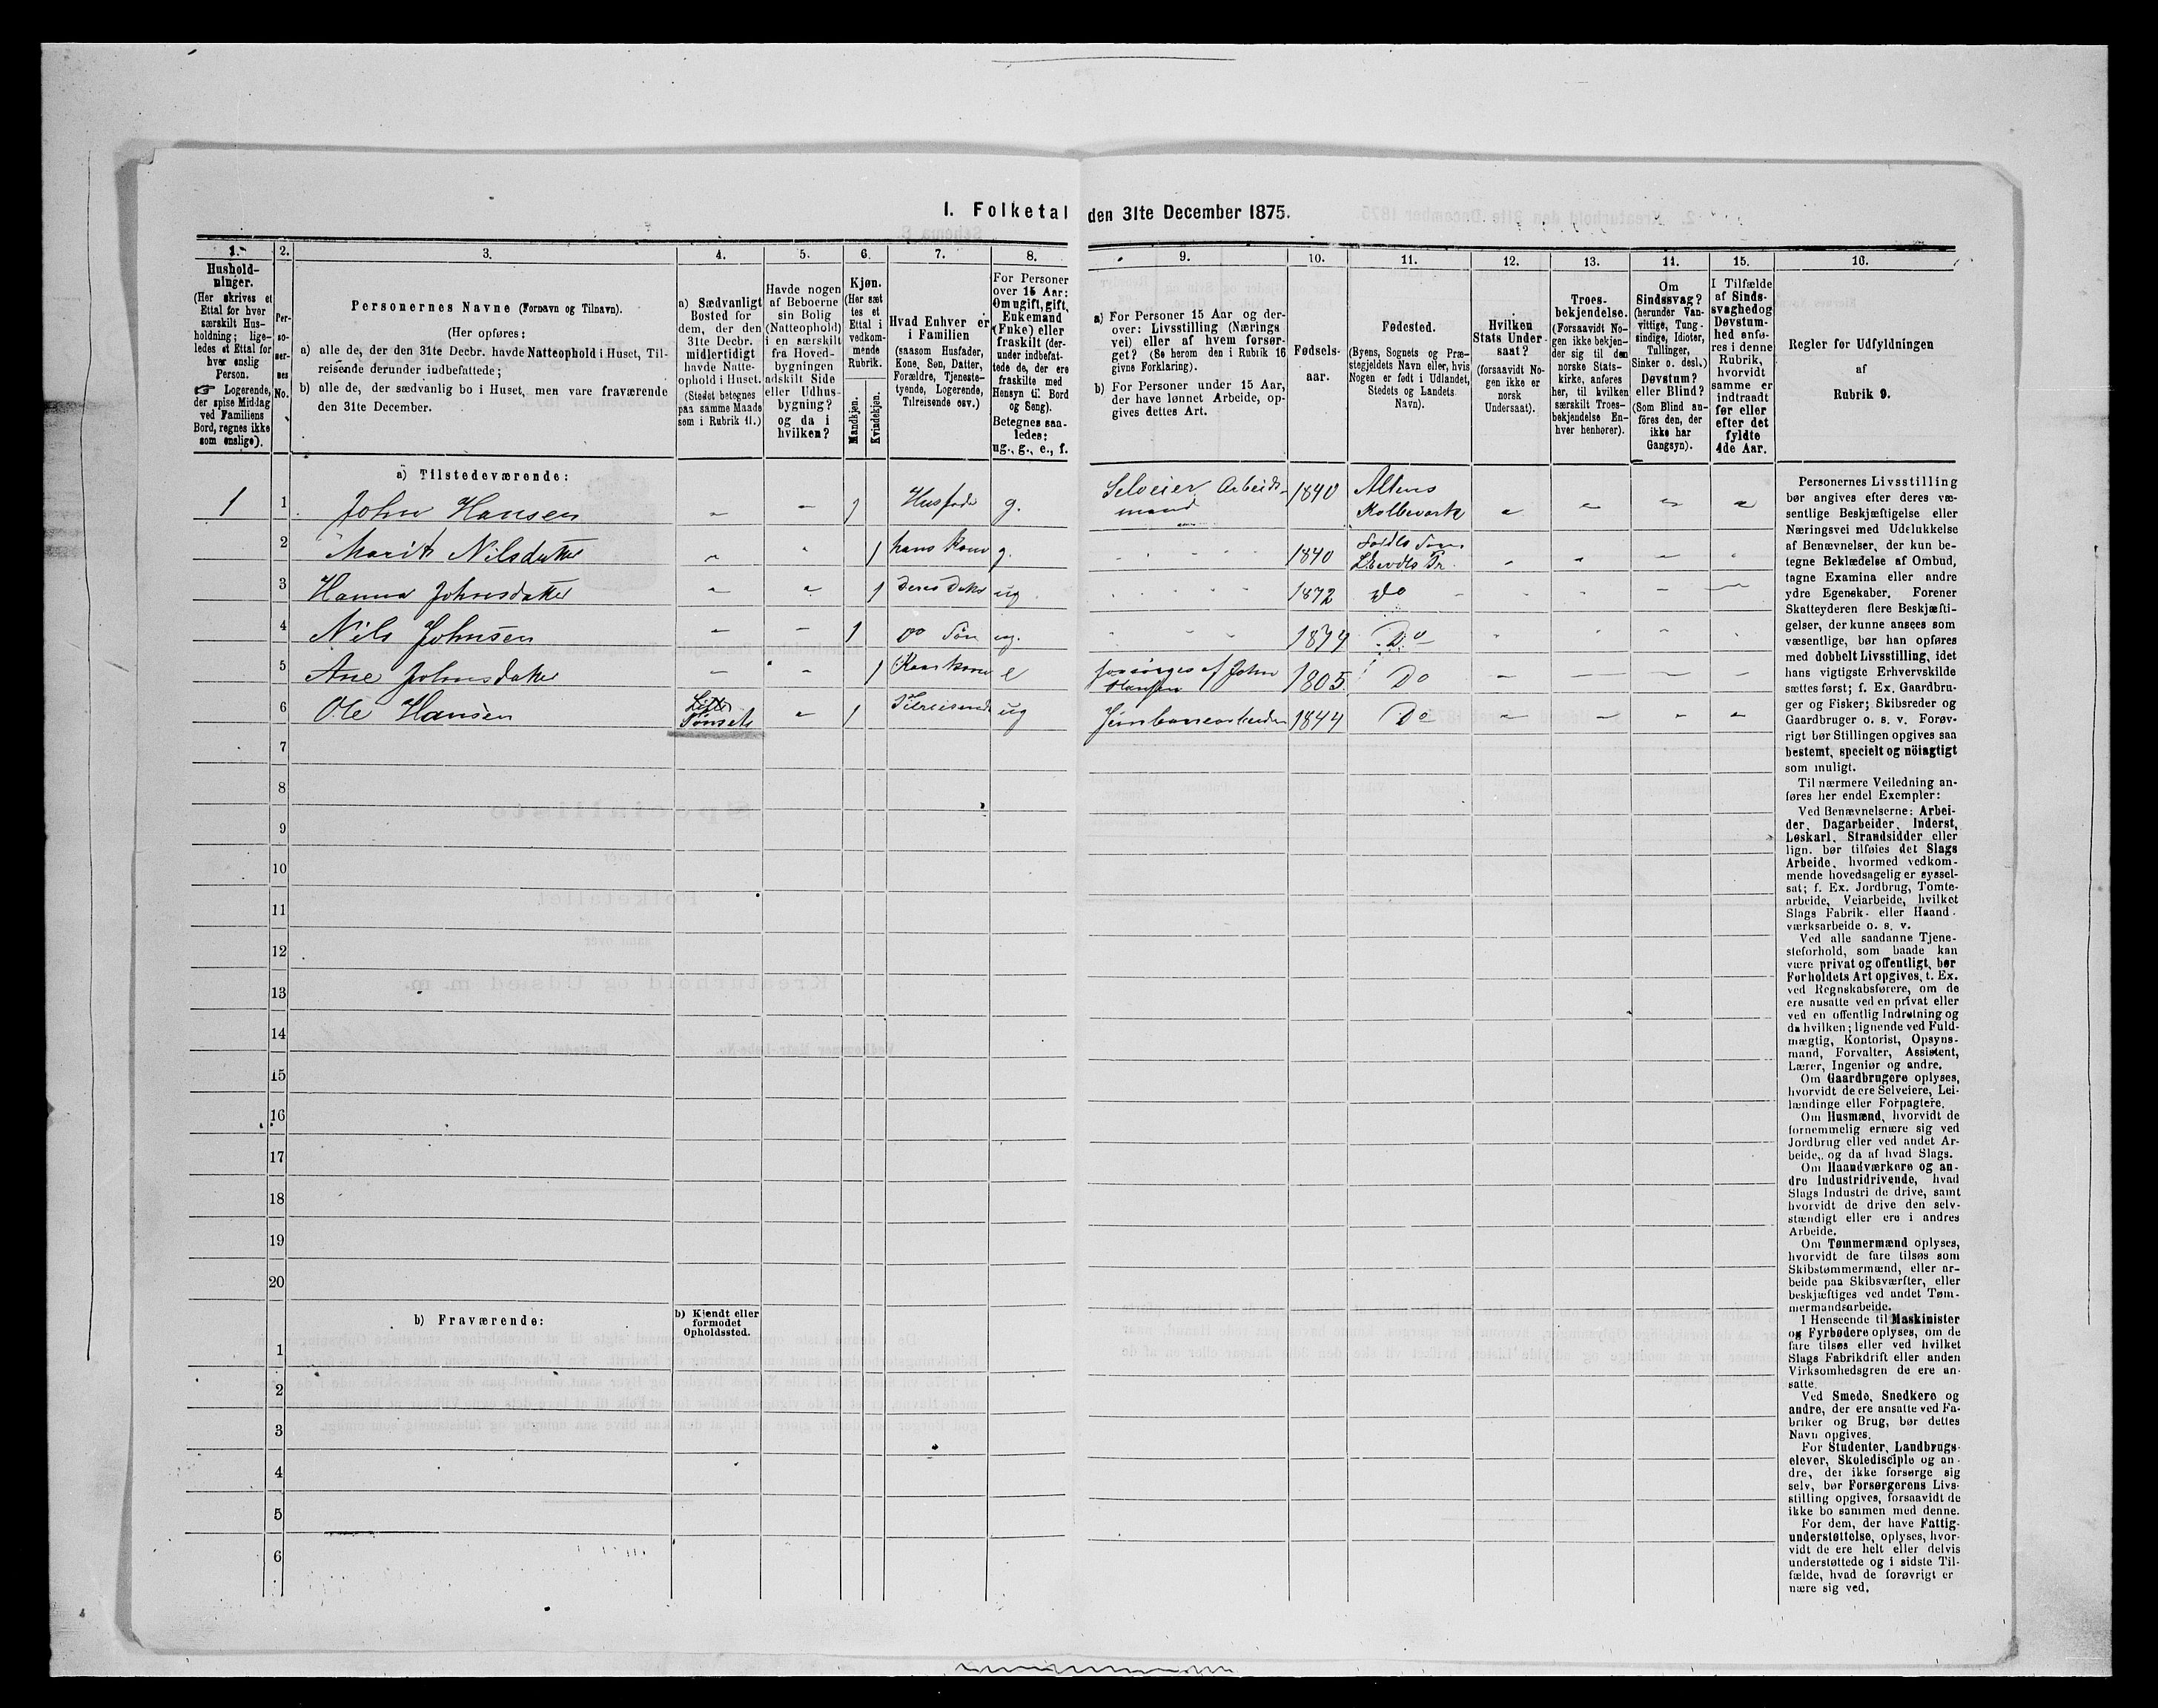 I. Folketal den 31te December 1875.
1.
Hushold-
ninger.
(Her skrives et
Ettal for hver
særskilt Hus-
holdning; lige-
ledes et Ettal for
hver enslig
Person.
☞ Logerende,
der spise Middag
ved Familiens
Bord, regnes ikke
som enslige).
2.
Per-
so-
ner-
nes
No.
3.
Personernes Navne (Fornavn og Tilnavn).
(Her opføres:
a) alle de, der den 31te Decbr. havde Natteophold i Huset, Til-
reisende derunder indbefattede;
b) alle de, der sædvanlig bo i Huset, men vare fraværende
den 31te December.
4.
a) Sædvanligt
Bosted for
dem, der den
31te Decbr.
midlertidigt
havde Natte-
ophold i Huset.
(Stedet betegnes
paa samme Maade
som i Rubrik 11.)
5.
Havde nogen
af Beboerne
sin Bolig
(Natteophold)
i en særskilt
fra Hoved-
bygningen
adskilt Side
eller Udhus-
bygning?
og da i
hvilken?
6.
Kjøn.
(Her sæt
tes et
Ettal i
vedkom-
mende
Rubrik.
Mandkjøn.
Kvindekjøn.
7.
Hvad Enhver er
i Familien
(saasom Husfader,
Kone, Søn, Datter,
Forældre, Tjeneste-
tyende, Logerende,
Tilreisende osv.)
8.
For Personer
over 15 Aar:
Om ugift, gift,
Enkemand
(Enke) eller
fraskilt (der-
under indbefat-
tede de, der ere
fraskilte med
Hensyn til Bord
og Seng).
Betegnes saa-
ledes:
ug., g., e., f.
9.
a) For Personer 15 Aar og der-
over: Livsstilling (Nærings
vei) eller af hvem forsør-
get? (Se herom den i Rubrik 16
givne Forklaring).
b) For Personer under 15 Aar,
der have lønnet Arbeide, op-
gives dettes Art.
10.
Fødsels-
aar.
11.
Fødested.
(Byens, Sognets og Præ-
stegjeldets Navn eller, hvis
Nogen er født i Udlandet,
Stedets og Landets
Navn).
12.
Hvilken
Stats Under
saat?
(forsaavidt No-
gen ikke er
norsk
Undersaat).
13.
Troes-
bekjendelse.
(Forsaavidt No-
gen ikke bekjen-
der sig til den
norske Stats-
kirke, anføres
her, til hvilken
særskilt Troes-
bekjendelse En-
hver henhører).
14.
Om
Sindssvag?
(herunder Van-
vittige, Tung-
sindige, Idioter,
Tullinger,
Sinker o. desl.)
Døvstum?
eller Blind?
(Som Blind an-
føres den, der
ikke har
Gangsyn).
15.
I Tilfælde
af Sinds-
svaghed og
Døvstum-
hed anfø-
res i denne
Rubrik,
hvorvidt
samme er
indtraadt
før eller
efter det
fyldte
4de Aar.
16.
Regler for Udfyldningen
af
Rubrik 9.
a) Tilstedeværende:
1 1 John Hansen 1 Husfader g. Selveier Arbeids- mand 1840 Altens Kobberverk
2 Marit Nilsdatter 1 hans Kone g. 1840
3 Hanna Johnsdatter 1 Deres Datter ug 1872 Do
4 Nils Johnsen 1 Do Søn ug. 1874 Do
5 Ane Johnsdatter 1 Kaarkone e forsørges af John Hansen 1805 Do
6 Ole Hansen Tønset 1 Tilreisende ug Jernbanearbeider 1844 Do
7
8
9
10
11
12
13
14
15
16
17
18
19
20
b) Fraværende:
b) Kjendt eller
formodet
Opholdssted.
1
2
3
4
5
6
Personernes Livsstilling
bør angives efter deres væ-
sentlige Beskjæftigelse eller
Næringsvei med Udelukkelse
af Benævnelser, der kun be-
tegne Beklædelse af Ombud,
tagne Examina eller andre
ydre Egenskaber. Forener
Skatteyderen flere Beskjæfti-
gelser, der kunne ansees som
væsentlige, bør han opføres
med dobbelt Livsstilling, idet
hans vigtigste Erhvervskilde
sættes først; f. Ex. Gaardbru-
ger og Fisker; Skibsreder og
Gaardbruger o. s. v. Forøv-
rigt bør Stillingen opgives saa
bestemt, specielt og nöiagtigt
som muligt.
Til nærmere Veiledning an-
føres her endel Exempler:
Ved Benævnelserne: Arbei-
der, Dagarbeider, Inderst,
Løskarl, Strandsidder eller
lign. bør tilføies det Slags
Arbeide, hvormed vedkom-
mende hovedsagelig er syssel-
sat; f. Ex. Jordbrug, Tomte-
arbeide, Veiarbeide, hvilket
Slags Fabrik- eller Haand-
værksarbeide o. s. v.
Ved alle saadanne Tjene-
steforhold, som baade kan
være privat og offentligt, bør
Forholdets Art opgives, f. Ex.
ved Regnskabsførere, om de
ere ansatte ved en privat eller
ved en offentlig Indretning og
da hvilken; lignende ved Fuld-
mægtig, Kontorist, Opsyns-
mand, Forvalter, Assistent,
Lærer, Ingeniør og andre.
Om Gaardbrugere oplyses,
hvorvidt de ere Selveiere, Lei-
lændinge eller Forpagtere.
Om Husmænd, hvorvidt de
fornemmelig ernære sig ved
Jordbrug eller ved andet Ar-
beide, og da af hvad Slags.
Om Haandværkere og an-
dre Industridrivende, hvad
Slags Industri de drive, samt
hvorvidt de drive den selv-
stændigt eller ere i andres
Arbeide.
Om Tømmermænd oplyses,
hvorvidt de fare tilsøs som
Skibstømmermænd, eller ar-
beide paa Skibsværfter, eller
beskjæftiges ved andet Tøm-
mermandsarbeide.
I Henseende til Maskinister
og Fyrbødere oplyses, om de
fare tilsøs eller ved hvilket
Slags Fabrikdrift eller anden
Virksomhedsgren de ere an-
satte.
Ved Smede, Snedkere og
andre, der ere ansatte ved Fa-
briker og Brug, bør dettes
Navn opgives.
For Studenter, Landbrugs-
elever, Skoledisciple og an-
dre, der ikke forsørge sig
selv, bør Forsørgerens Livs-
stilling opgives, forsaavidt de
ikke bo sammen med denne.
For dem, der have Fattig-
understøttelse, oplyses, hvor-
vidt de ere helt eller delvis
understøttede og i sidste Til-
fælde, hvad de forøvrigt er
nære sig ved.